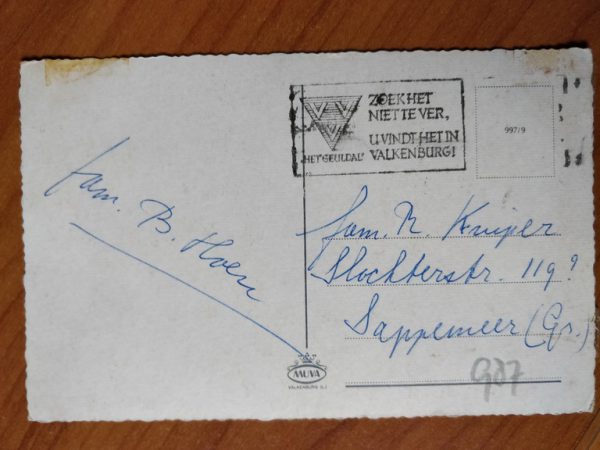 ZOEK HET
NIET TE VER,
U VINDT HET IN
VALKENBURG!
"HET GEULDAL"
997/9
fam. B. Hoen
fam. R. Kuiper
Slochterstr. 119?
Sappemeer (Gr.)
MUVA
VALKENBURG (L.)
907